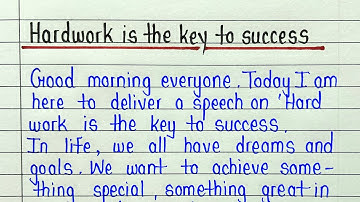 Hardwork is the key to success
Good morning everyone. Today I am
here to deliver a speech on 'Hard
work is the key to success.
In life, we all have dreams and
goals. We want to achieve some-
thing special, something great in